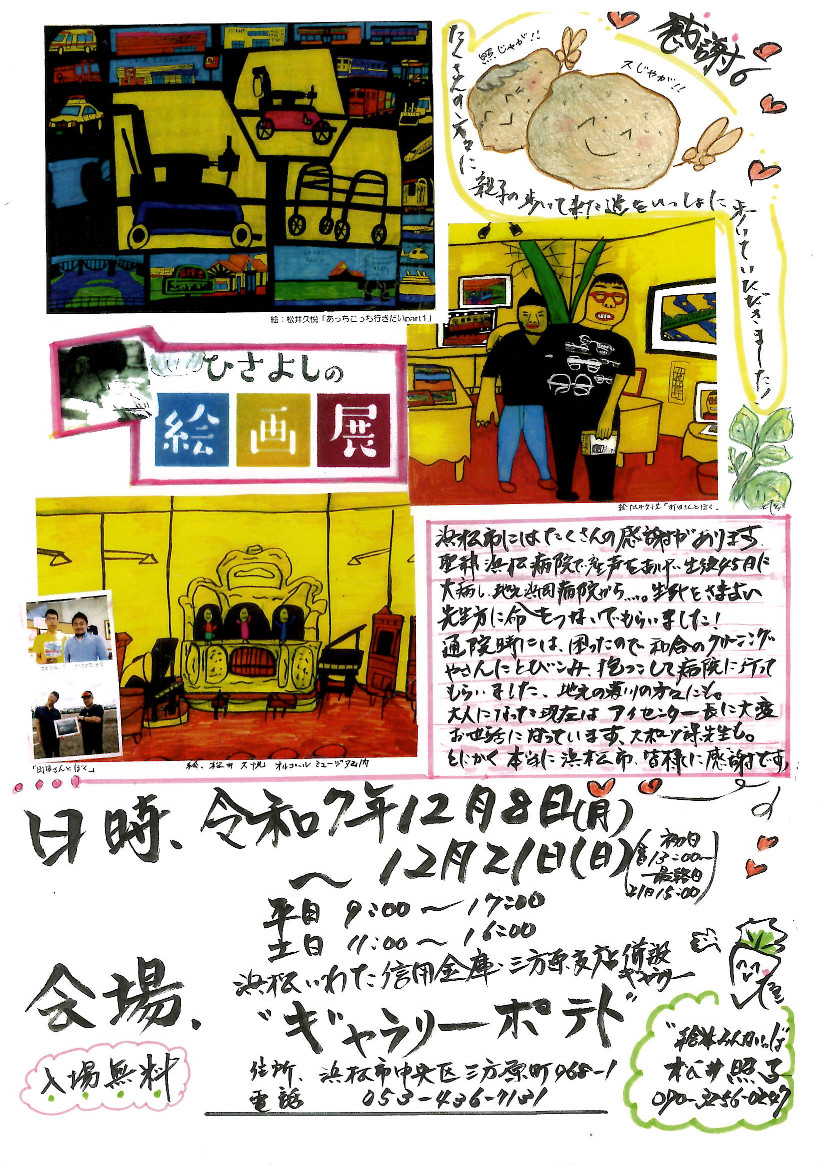 感謝
照じゃが!!
久じゃが!!
たくさんの方々に
親子の歩いて来た道をいっしょに
歩いていただきました!
絵：松井久悦「あっちこっち行きたいpart1」
ひさよしの
絵画展
絵 松井久悦「町田さんとぼく」
浜松市にはたくさんの感謝があります
聖隷浜松病院で産声をあげ、生後45日に
大病し、地元 病院から…。生死をさまよい
先生方に命をつないでもらいました!
通院時には、困ったので和合のクリーニング
やさんにとびこみ、抱っこして病院に行って
もらいました、地元の 方々にも。
大人になった現在は アイセンター長に大変
お世話になっています、スポーツ課先生も。
とにかく本当に浜松市、皆様に感謝です。
「町田さんとぼく」
絵、松井久悦 オルゴールミュージアム内
日時、令和7年12月8日(月)
〜12月21日(日)
初日
8日13:00〜
最終日
21日15:00
平日 9:00〜17:00
土日 11:00〜16:00
浜松いわた信用金庫 三方原支店 併設
ギャラリー
会場、“ギャラリーポテト”
入場無料
住所、浜松市中央区三方原町968-1
電話 053-436-7131
松井照子
090-3256-0247